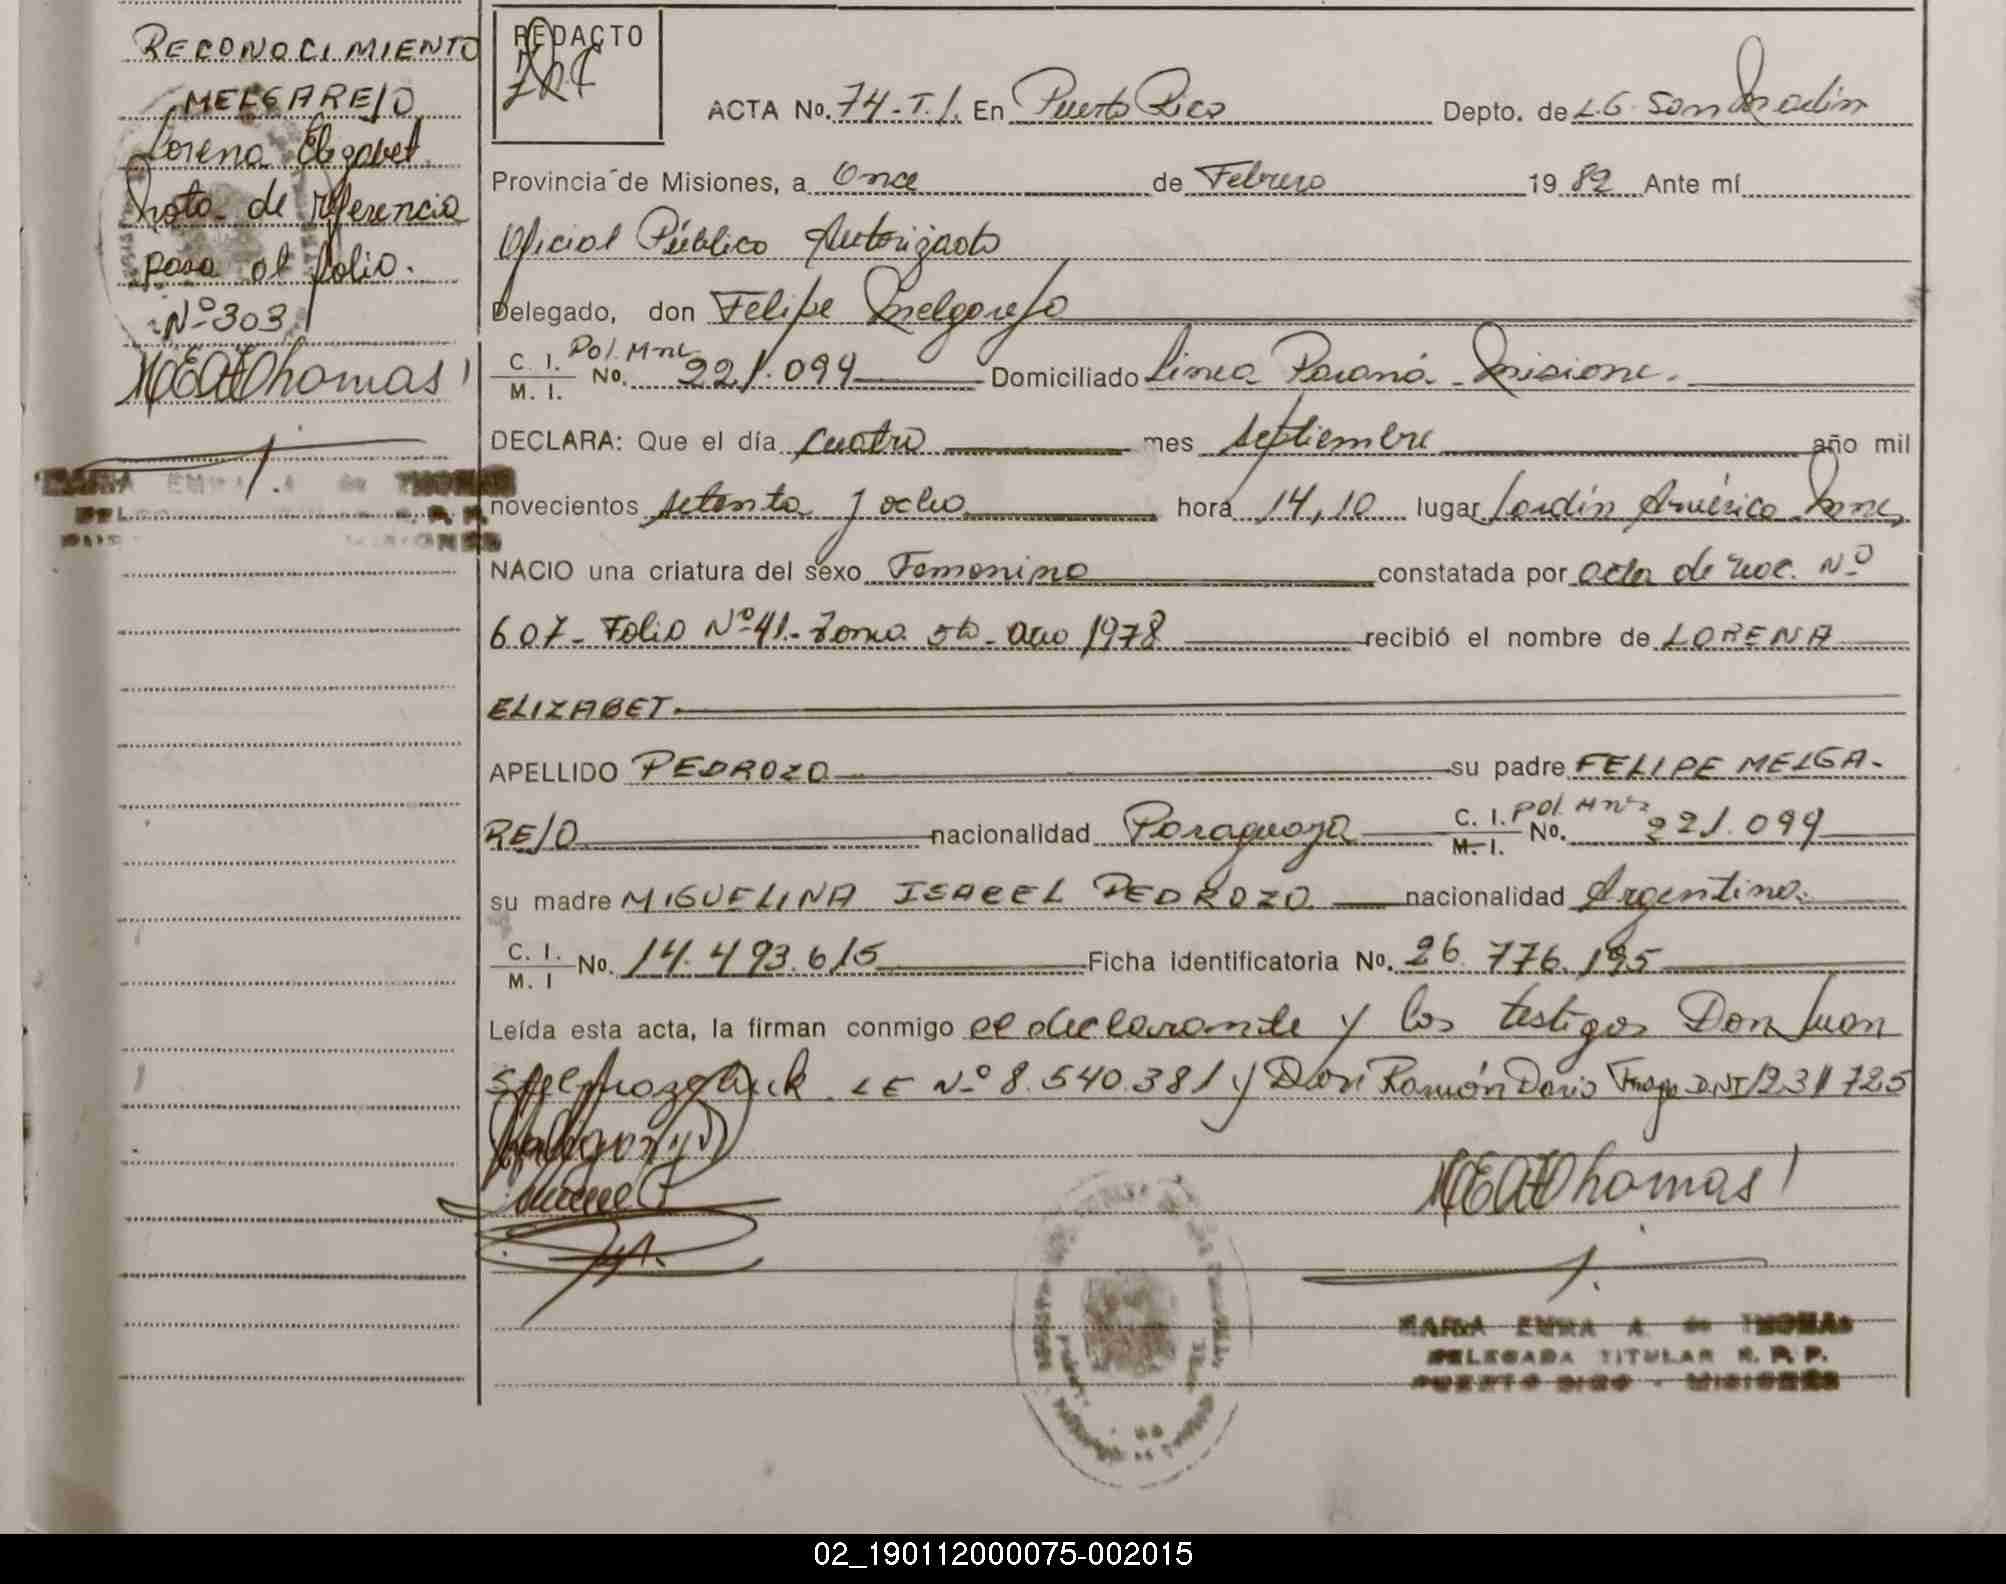 RECONOCIMIENTO
MELGAREJO
Lorena Elizabet.
Nota de referencia
pasa al folio.
Nº 303
MEAThomas
MARIA EMMA A. de THOMAS
REDACTO
ACTA No. 74-T.I. En Puerto Rico Depto. de L.G. San Martin
Provincia de Misiones, a Once de Febrero 1982 Ante mí
Oficial Público Autorizado
Delegado, don Felipe Melgarejo
C. I. Pol. Mnes
M. I. No. 221.094 Domiciliado Linea Paraná - Misiones.
DECLARA: Que el día cuatro mes septiembre año mil
novecientos setenta y ocho hora 14,10 lugar Jardín América Mnes
NACIO una criatura del sexo Femenino constatada por acta de rec. Nº
607 - Folio Nº 41 - Tomo 5to - año 1978 recibió el nombre de LORENA
ELIZABET.
APELLIDO PEDROZO su padre FELIPE MELGA-
REJO nacionalidad Paraguaya C. I. Pol. Mnes M. I. No. 221.094
su madre MIGUELINA ISABEL PEDROZO nacionalidad Argentina.
C. I. M. I No. 14.493.615 Ficha identificatoria No. 26.776.195
Leída esta acta, la firman conmigo el declarante y los testigos Don Juan
LE Nº 8.540.381 y Don Ramón Dario DNI 1231725
MEAThomas
MARIA EMMA A. de THOMAS
DELEGADA TITULAR R. P. P.
PUERTO RICO - MISIONES
02_190112000075-002015